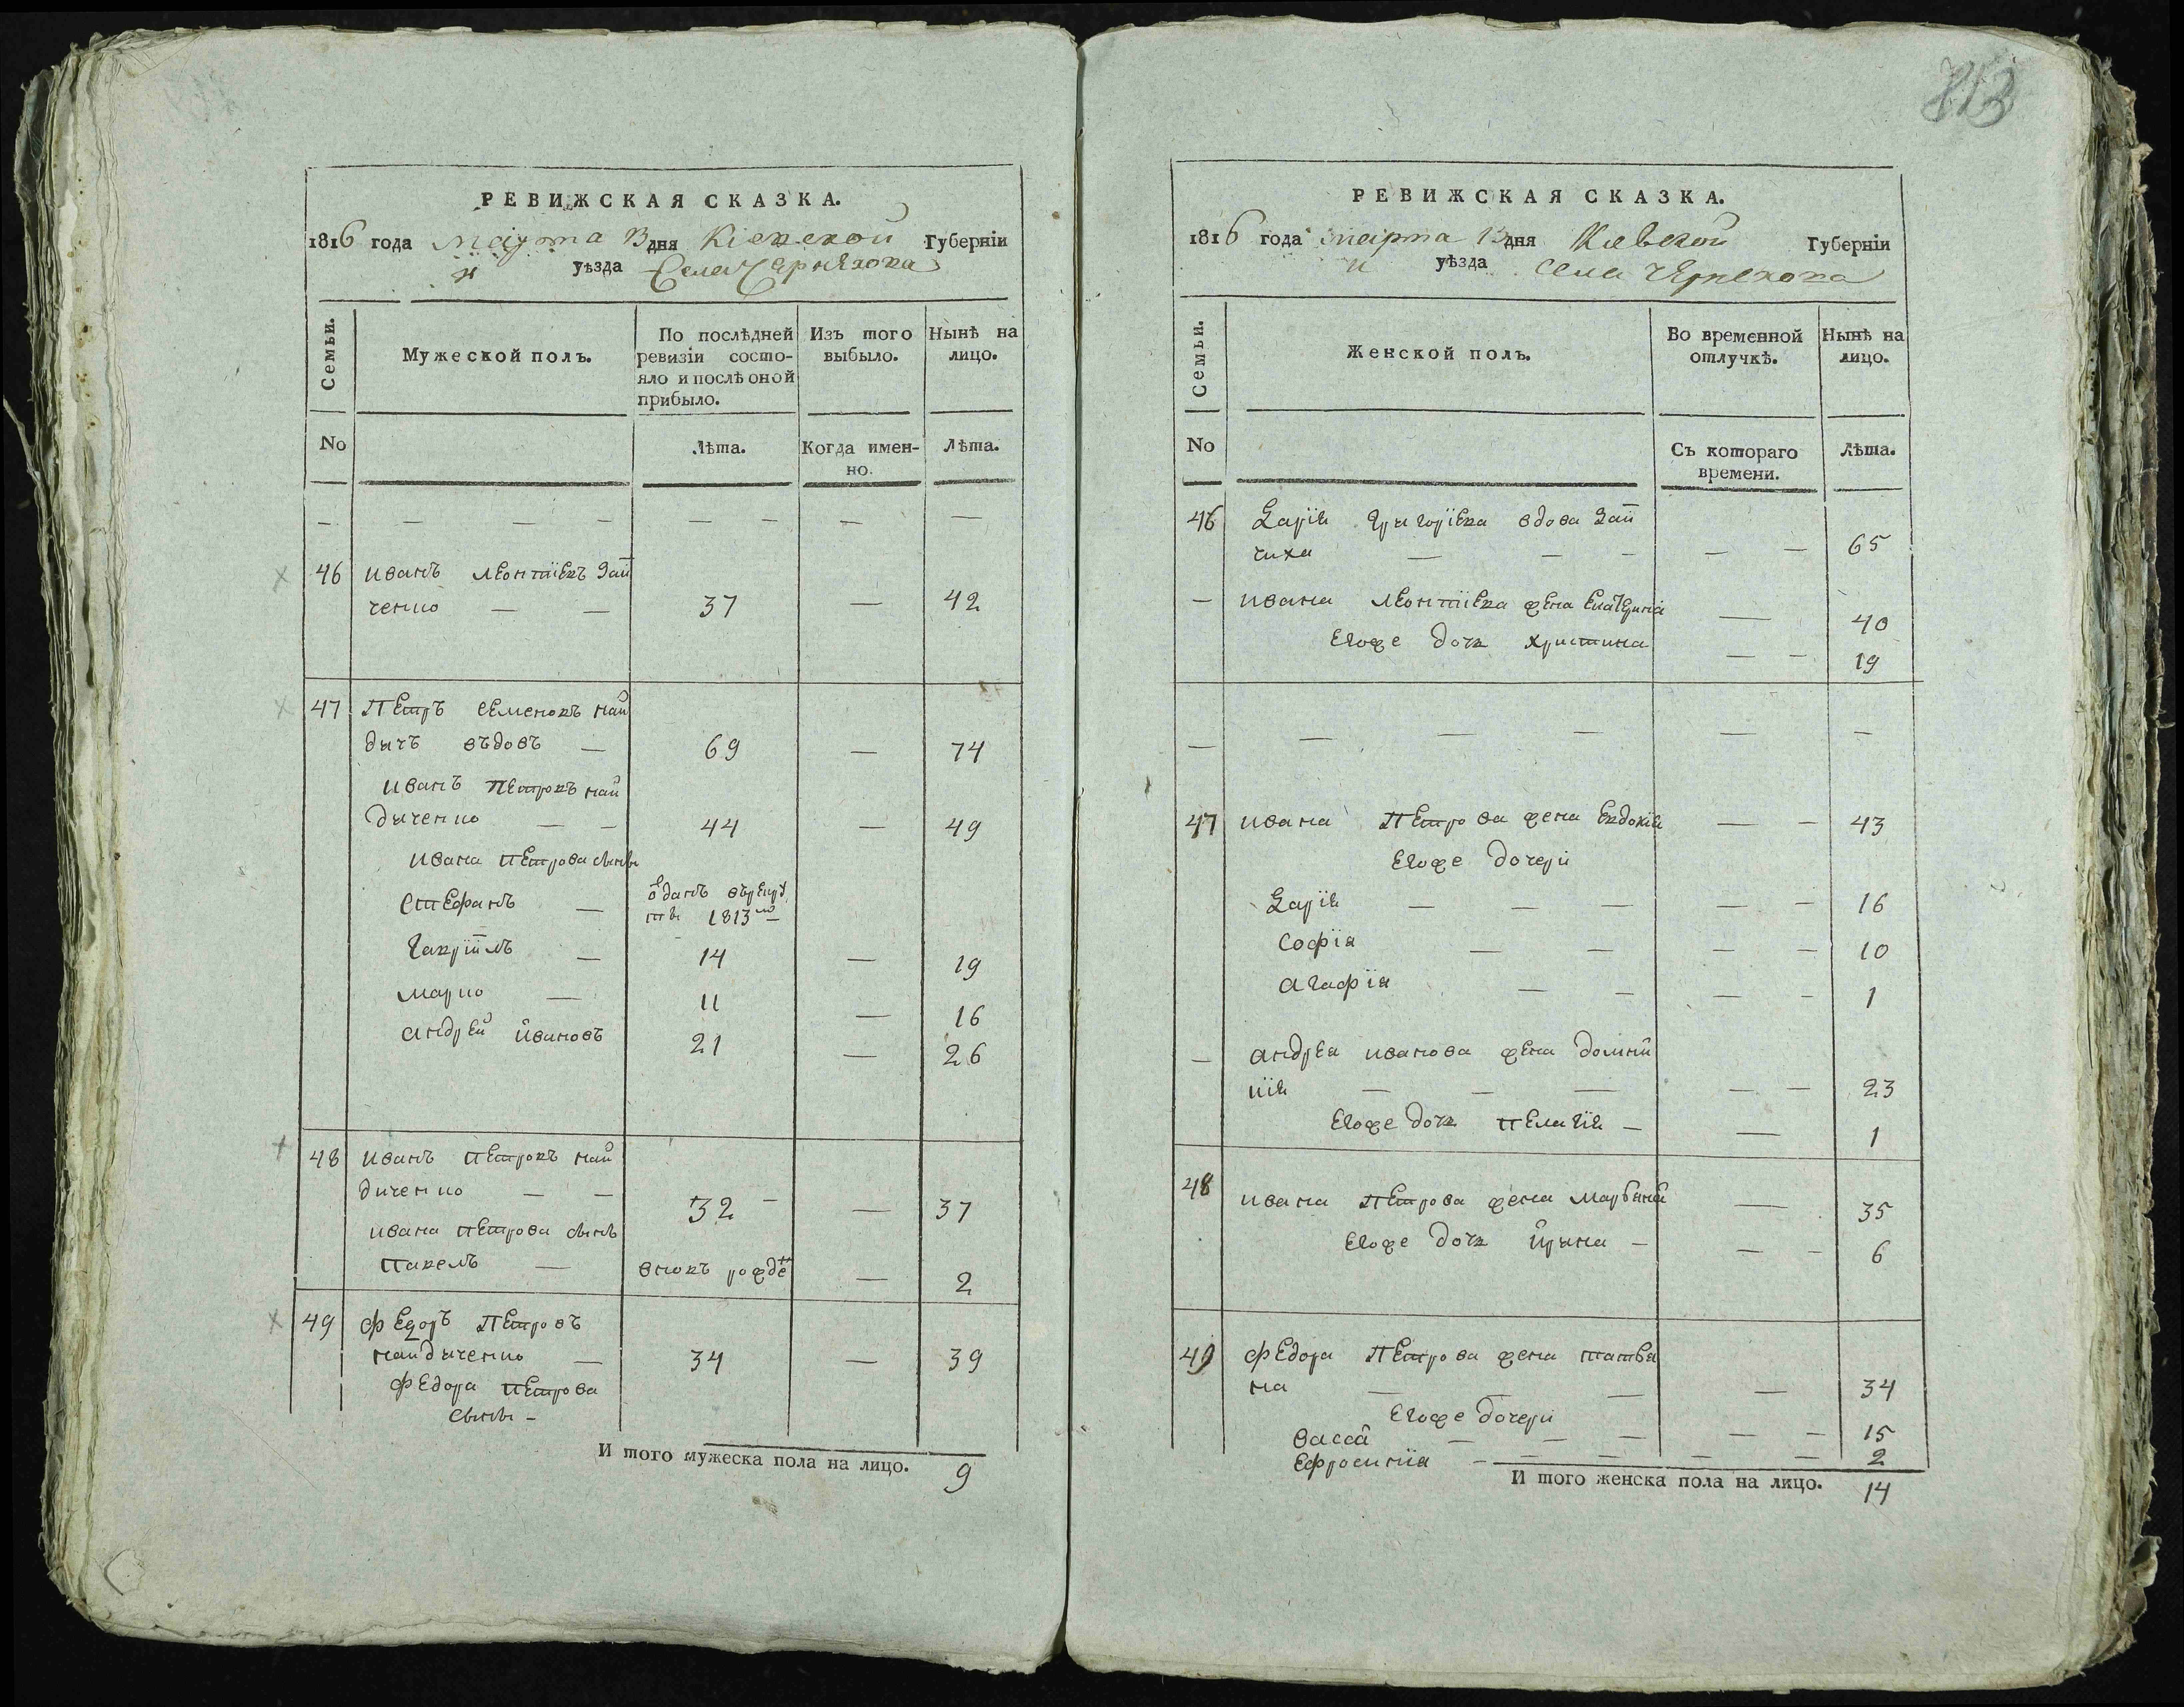 813
РЕВИЖСКАЯ СКАЗКА.
1816 года марта 13 дня Кіевской Губерніи
и уѣзда Села Чернѣхова
Семьи.
Мужеской полъ.
По послѣдней
ревизіи состо-
яло и послѣ оной
прибыло.
Изъ того
выбыло.
Нынѣ на
лицо.
No
Лѣта.
Когда имен-
но.
Лѣта.
— — — — — — — —
46 иванъ леонтіевъ Зай
ченко — — 37 — 42
47 Петръ семеновъ най
дычъ въдовъ — 69 — 74
иванъ Петровъ най
дыченко — — 44 — 49
ивана Петрова сыны
стефанъ — оданъ въ рекру
ты 1813го
гавріилъ — 14 — 19
марко — 11 — 16
андрей ивановъ 21 — 26
48 иванъ петровъ най
диченко — — 32 — — 37
ивана петрова сынъ
павелъ — вновъ рожде — 2
49 федоръ Петровъ
найдыченко — 34 — 39
федора петрова
сыны —
И того мужеска пола на лицо. 9
РЕВИЖСКАЯ СКАЗКА.
1816 года марта 13 дня Киевской Губерніи
и уѣзда села чернехова
Семьи.
Женской полъ.
Во временной
отлучкѣ.
Нынѣ на
лицо.
No
Съ котораго
времени.
Лѣта.
46 григоріева вдова Зай
чиха — — — — — 65
— ивана леонтіева жена Екатерина — 40
Егоже дочь христина — — 19
— — — — — —
47 ивана Петрова жена Евдокія — — 43
Егоже дочери
— — — — — 16
софія — — — — 10
агафія — — — — 1
— андреа иванова жена домни
кія — — — — — 23
Егоже дочь пелагія — — 1
48 ивана Петрова жена марьяна — 35
Егоже дочь ирина — — — 6
49 федора Петрова жена татья
на — — — — 34
Егоже дочери
васса — — — — — 15
Ефросинія — — — — — — 2
И того женска пола на лицо. 14